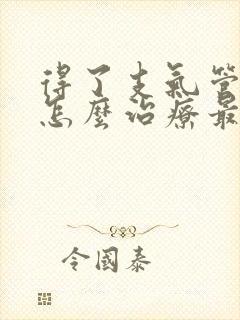 得了支氣管
怎麼治療最
令國泰